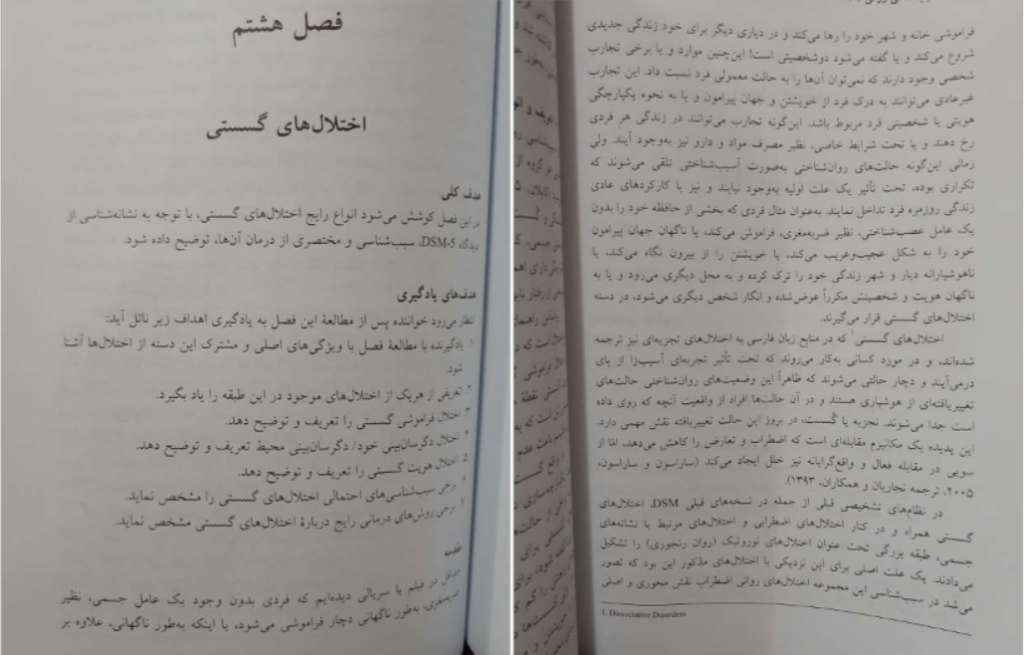 فصل هشتم
اختلال‌های گسستی
هدف کلی
در این فصل کوشش می‌شود انواع رایج اختلال‌های گسستی، با توجه به نشانه‌شناسی از
دیدگاه DSM-5، سبب‌شناسی و مختصری از درمان آن‌ها، توضیح داده شود.
هدف‌های یادگیری
انتظار می‌رود خواننده پس از مطالعهٔ این فصل به یادگیری اهداف زیر نائل آید:
۱. یادگیرنده با مطالعهٔ فصل با ویژگی‌های اصلی و مشترک این دسته از اختلال‌ها آشنا
شود.
۲. تعریفی از هریک از اختلال‌های موجود در این طبقه را یاد بگیرد.
۳. اختلال فراموشی گسستی را تعریف و توضیح دهد.
۴. اختلال دگرسان‌بینی خود/ دگرسان‌بینی محیط تعریف و توضیح دهد.
۵. اختلال هویت گسستی را تعریف و توضیح دهد.
۶. برخی سبب‌شناسی‌های احتمالی اختلال‌های گسستی را مشخص نماید.
۷. برخی روش‌های درمانی رایج دربارهٔ اختلال‌های گسستی مشخص نماید.
مقدمه
در فیلم یا سریالی دیده‌ایم که فردی بدون وجود یک عامل جسمی، نظیر
ضربه‌مغزی، به‌طور ناگهانی دچار فراموشی می‌شود، یا اینکه به‌طور ناگهانی، علاوه بر
فراموشی خانه و شهر خود را رها می‌کند و در دیاری دیگر برای خود زندگی جدیدی
شروع می‌کند و یا گفته می‌شود دوشخصیتی است! این‌چنین موارد و یا برخی تجارب
شخصی وجود دارند که نمی‌توان آن‌ها را به حالت معمولی فرد نسبت داد. این تجارب
غیرعادی می‌توانند به درک فرد از خویشتن و جهان پیرامون و یا به نحوه یکپارچگی
هویتی یا شخصیتی فرد مربوط باشد. این‌گونه تجارب می‌توانند در زندگی هر فردی
رخ دهند و یا تحت شرایط خاصی، نظیر مصرف مواد و دارو نیز به‌وجود آیند. ولی
زمانی این‌گونه حالت‌های روان‌شناختی به‌صورت آسیب‌شناختی تلقی می‌شوند که
تکراری بوده، تحت تأثیر یک علت اولیه به‌وجود نیایند و نیز با کارکردهای عادی
زندگی روزمره فرد تداخل نمایند. به‌عنوان مثال فردی که بخشی از حافظه خود را بدون
یک عامل عصب‌شناختی، نظیر ضربه‌مغزی، فراموش می‌کند، یا ناگهان جهان پیرامون
خود را به شکل عجیب‌وغریب می‌کند، یا خویشتن را از بیرون نگاه می‌کند، یا
ناهوشیارانه دیار و شهر زندگی خود را ترک کرده و به محل دیگری می‌رود و یا به
ناگهان هویت و شخصیتش مکرراً عوض‌شده و انگار شخص دیگری می‌شود، در دسته
اختلال‌های گسستی قرار می‌گیرند.
اختلال‌های گسستی¹ که در منابع زبان فارسی به اختلال‌های تجزیه‌ای نیز ترجمه
شده‌اند، و در مورد کسانی به‌کار می‌روند که تحت تأثیر تجربه‌ای آسیب‌زا از پای
درمی‌آیند و دچار حالتی می‌شوند که ظاهراً این وضعیت‌های روان‌شناختی حالت‌های
تغییریافته‌ای از هوشیاری هستند و در آن حالت‌ها افراد از واقعیت آنچه که روی داده
است جدا می‌شوند. تجزیه یا گُسست، در بروز این حالت تغییریافته نقش مهمی دارد.
این پدیده یک مکانیزم مقابله‌ای است که اضطراب و تعارض را کاهش می‌دهد، امّا از
سویی در مقابله فعال و واقع‌گرایانه نیز خلل ایجاد می‌کند (ساراسون و ساراسون،
۲۰۰۵، ترجمه نجاریان و همکاران، ۱۳۹۳).
در نظام‌های تشخیصی قبلی از جمله در نسخه‌های قبلی DSM، اختلال‌های
گسستی همراه و در کنار اختلال‌های اضطرابی و اختلال‌های مرتبط با نشانه‌های
جسمی، طبقه بزرگی تحت عنوان اختلال‌های نوروتیک (روان رنجوری) را تشکیل
می‌دادند. یک علت اصلی برای این نزدیکی با اختلال‌های مذکور این بود که تصور
می‌شد در سبب‌شناسی این مجموعه اختلال‌های روانی اضطراب نقش محوری و اصلی
1. Dissociative Disorders